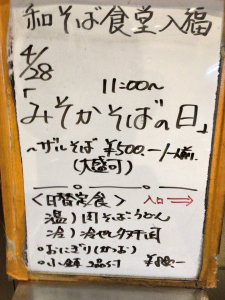 和そば食堂入福
4/28
11:00〜
「みそかそばの日」
〜ザルそば ¥500.-/一人前.
(大盛可)
<日替定食> 入口→
温)肉そばうどん
冷)冷やし
○おにぎり(かつお)
○小鉢 2品付 ¥880-